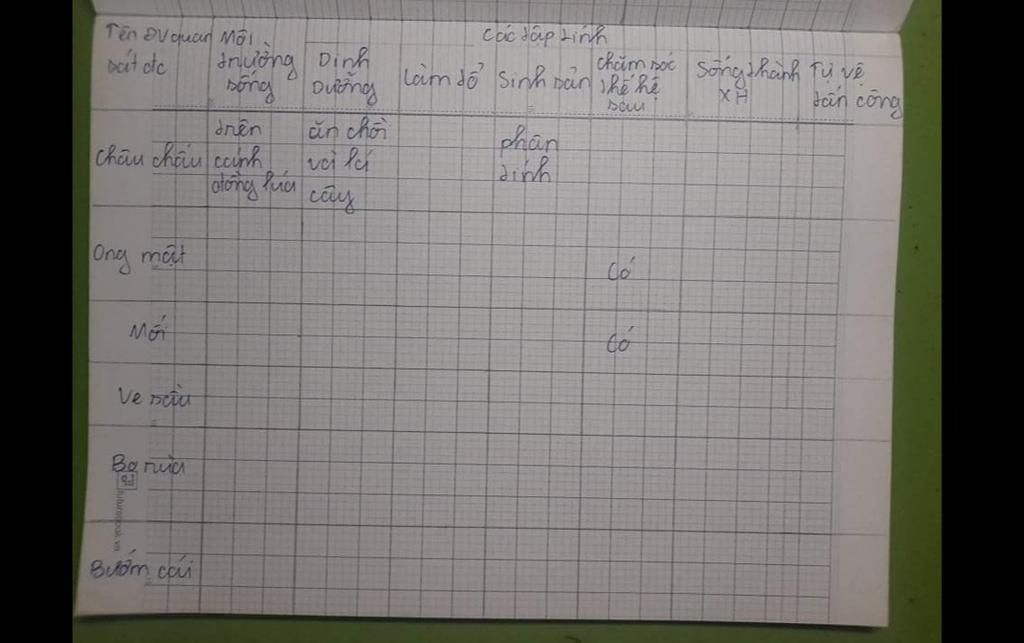 Tên ĐV quan Môi Các tập tính
sát đc trường Dinh Làm tổ Sinh sản chăm sóc Sống thành Tự vệ
sống Dưỡng thế hệ XH tấn công
sau
trên ăn chồi phân
châu chấu cánh và lá tính
đồng lúa cây
Ong mật có
Mối có
Ve sầu
Bọ rùa
Bướm cải